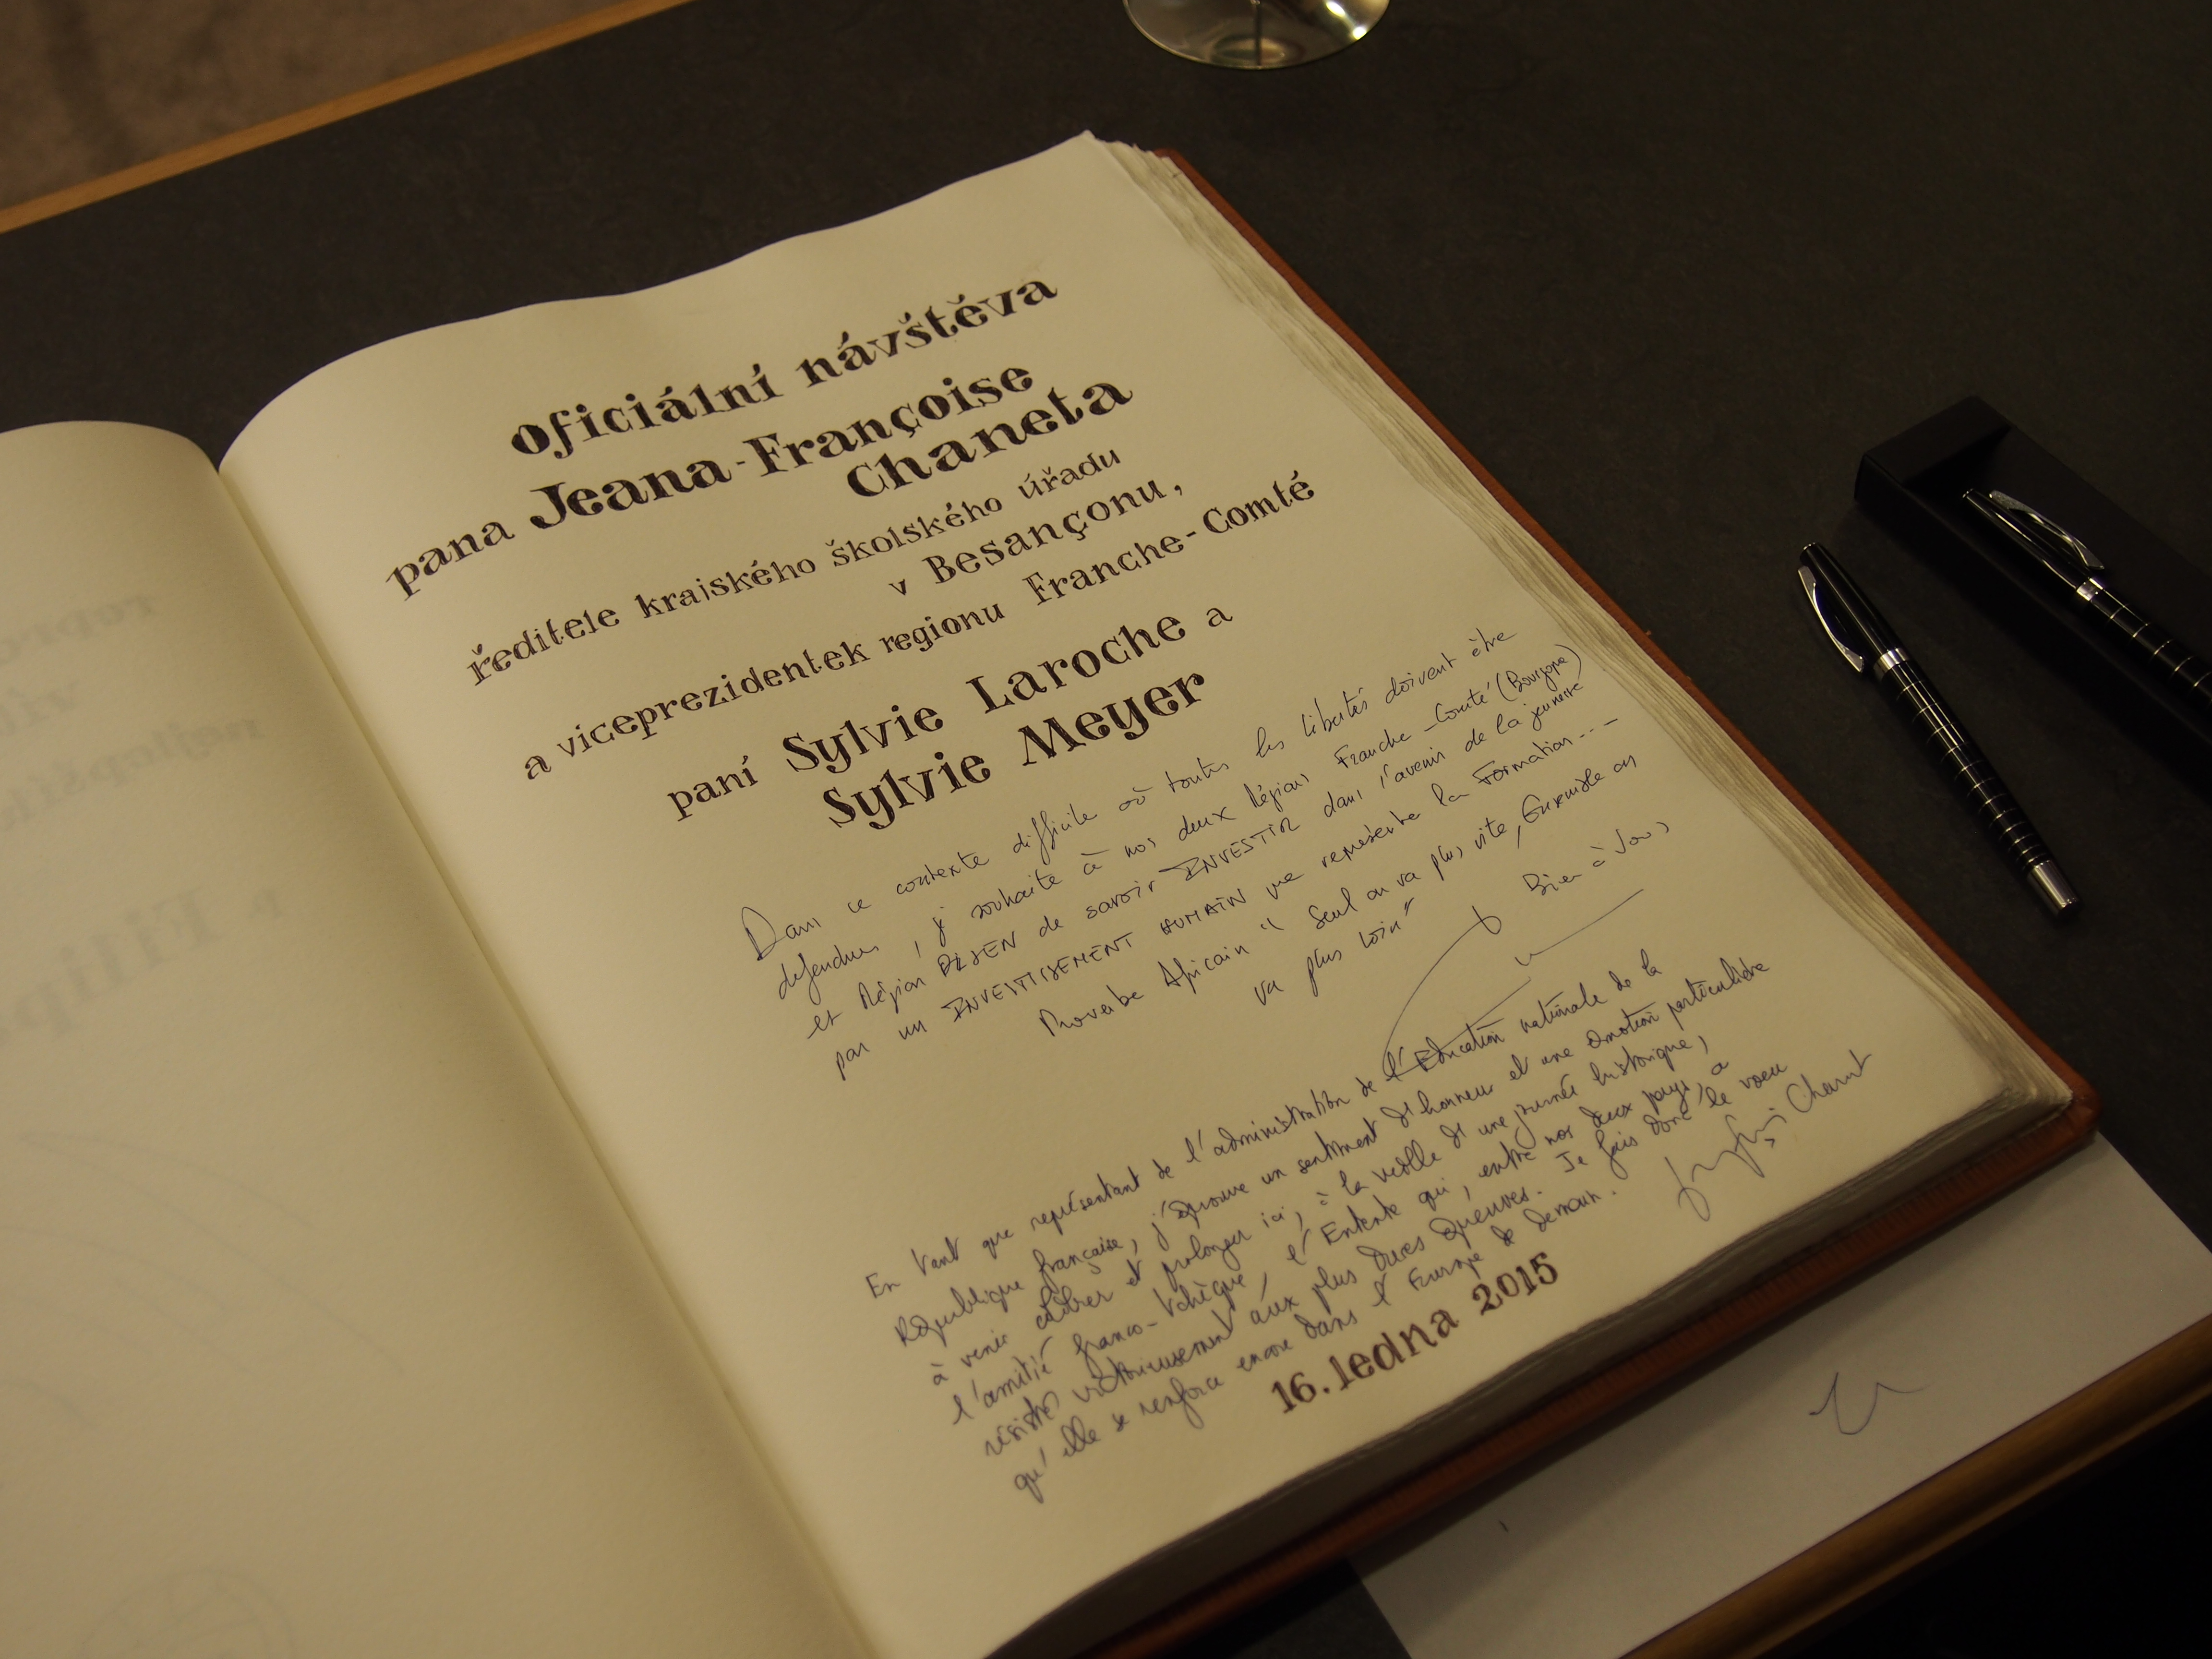 oficiální návštěva
pana Jeana-Françoise
Chaneta
ředitele krajského školského úřadu
v Besançonu,
a viceprezidentek regionu Franche-Comté
paní Sylvie Laroche a
Sylvie Meyer
Dans ce contexte difficile où toutes les libertés doivent être
défendues, je souhaite à nos deux Régions Franche-Comté (Bourgogne)
et Région PLSEN de savoir INVESTIR dans l'avenir de la jeunesse
par un INVESTISSEMENT HUMAIN que représente la Formation ---
Proverbe Africain " Seul on va plus vite, Ensemble on
va plus loin"
Bien à Vous,
En tant que représentant de l'administration de l'Education nationale de la
République française, j'éprouve un sentiment d'honneur et une émotion particulière
à venir célébrer et prolonger ici, à la veille d'une journée historique,
l'amitié franco-tchèque, l'Entente qui, entre nos deux pays, a
résisté victorieusement aux plus dures épreuves. Je fais donc le voeu
qu'elle se renforce encore dans l'Europe de demain.
Chanet
16. ledna 2015